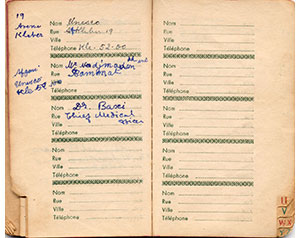 19
Avenue
Kleber
Nom Unesco
Rue Kleber 19
Ville
Téléphone Kle. 52.00
Nom
Rue
Ville
Téléphone
Unesco
Kle 52
Nom Dr. Baxi
Rue Chief Medical
Ville
Téléphone
Nom
Rue
Ville
Téléphone
Nom
Rue
Ville
Téléphone
Nom
Rue
Ville
Téléphone
Nom
Rue
Ville
Téléphone
Nom
Rue
Ville
Téléphone
Nom
Rue
Ville
Téléphone
U
V
WX